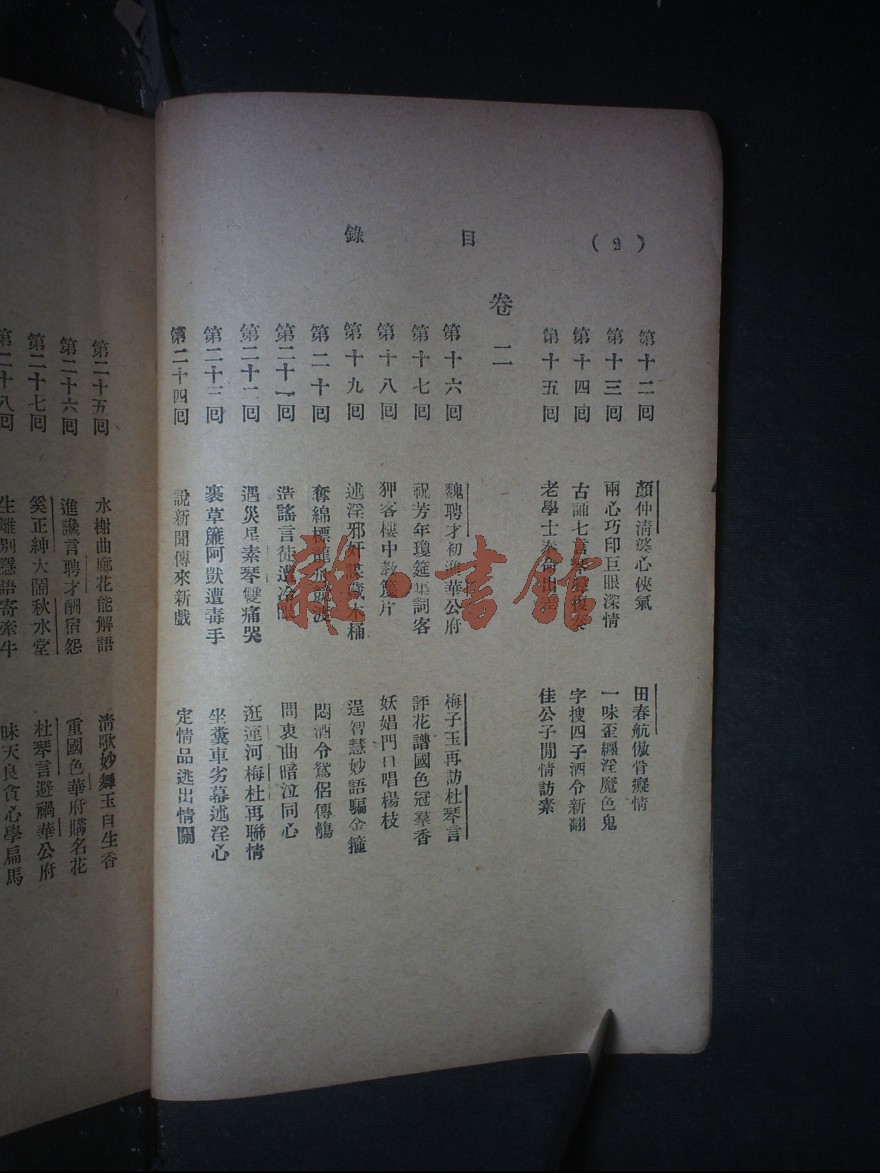 (2)
目 錄
第十二回 顏仲清婆心俠氣 田春航傲骨癡情
第十三回 兩心巧印巨眼深情 一味歪纏淫魔色鬼
第十四回 古誦七言琴 字搜四子酒令新翻
第十五回 老學士奉命出差 佳公子閒情訪素
卷二
第十六回 魏聘才初進華公府 梅子玉再訪杜琴言
第十七回 祝芳年瓊筵集詞客 評花譜國色冠羣香
第十八回 狎客樓中敎篾片 妖娼門口唱楊枝
第十九回 述淫邪奸 藏木桶 逞智慧妙語騙金箍
第二十回 奪錦標龍 悶酒令鴛侶傳觴
第二十一回 造謠言徒遭冷 問衷曲暗泣同心
第二十二回 遇災星素琴雙痛哭 逛運河梅杜再聯情
第二十三回 裹草簾阿獃遭毒手 坐糞車劣幕述淫心
第二十四回 說新聞傳來新戲 定情品逃出情關
第二十五回 水榭曲廊花能解語 淸歌妙舞玉自生香
第二十六回 進讒言聘才酬宿怨 重國色華府購名花
第二十七回 奚正紳大鬧秋水堂 杜琴言避禍華公府
第二十八回 生離別隱語寄牽牛 昧天良貪心學扁馬
雜·書館